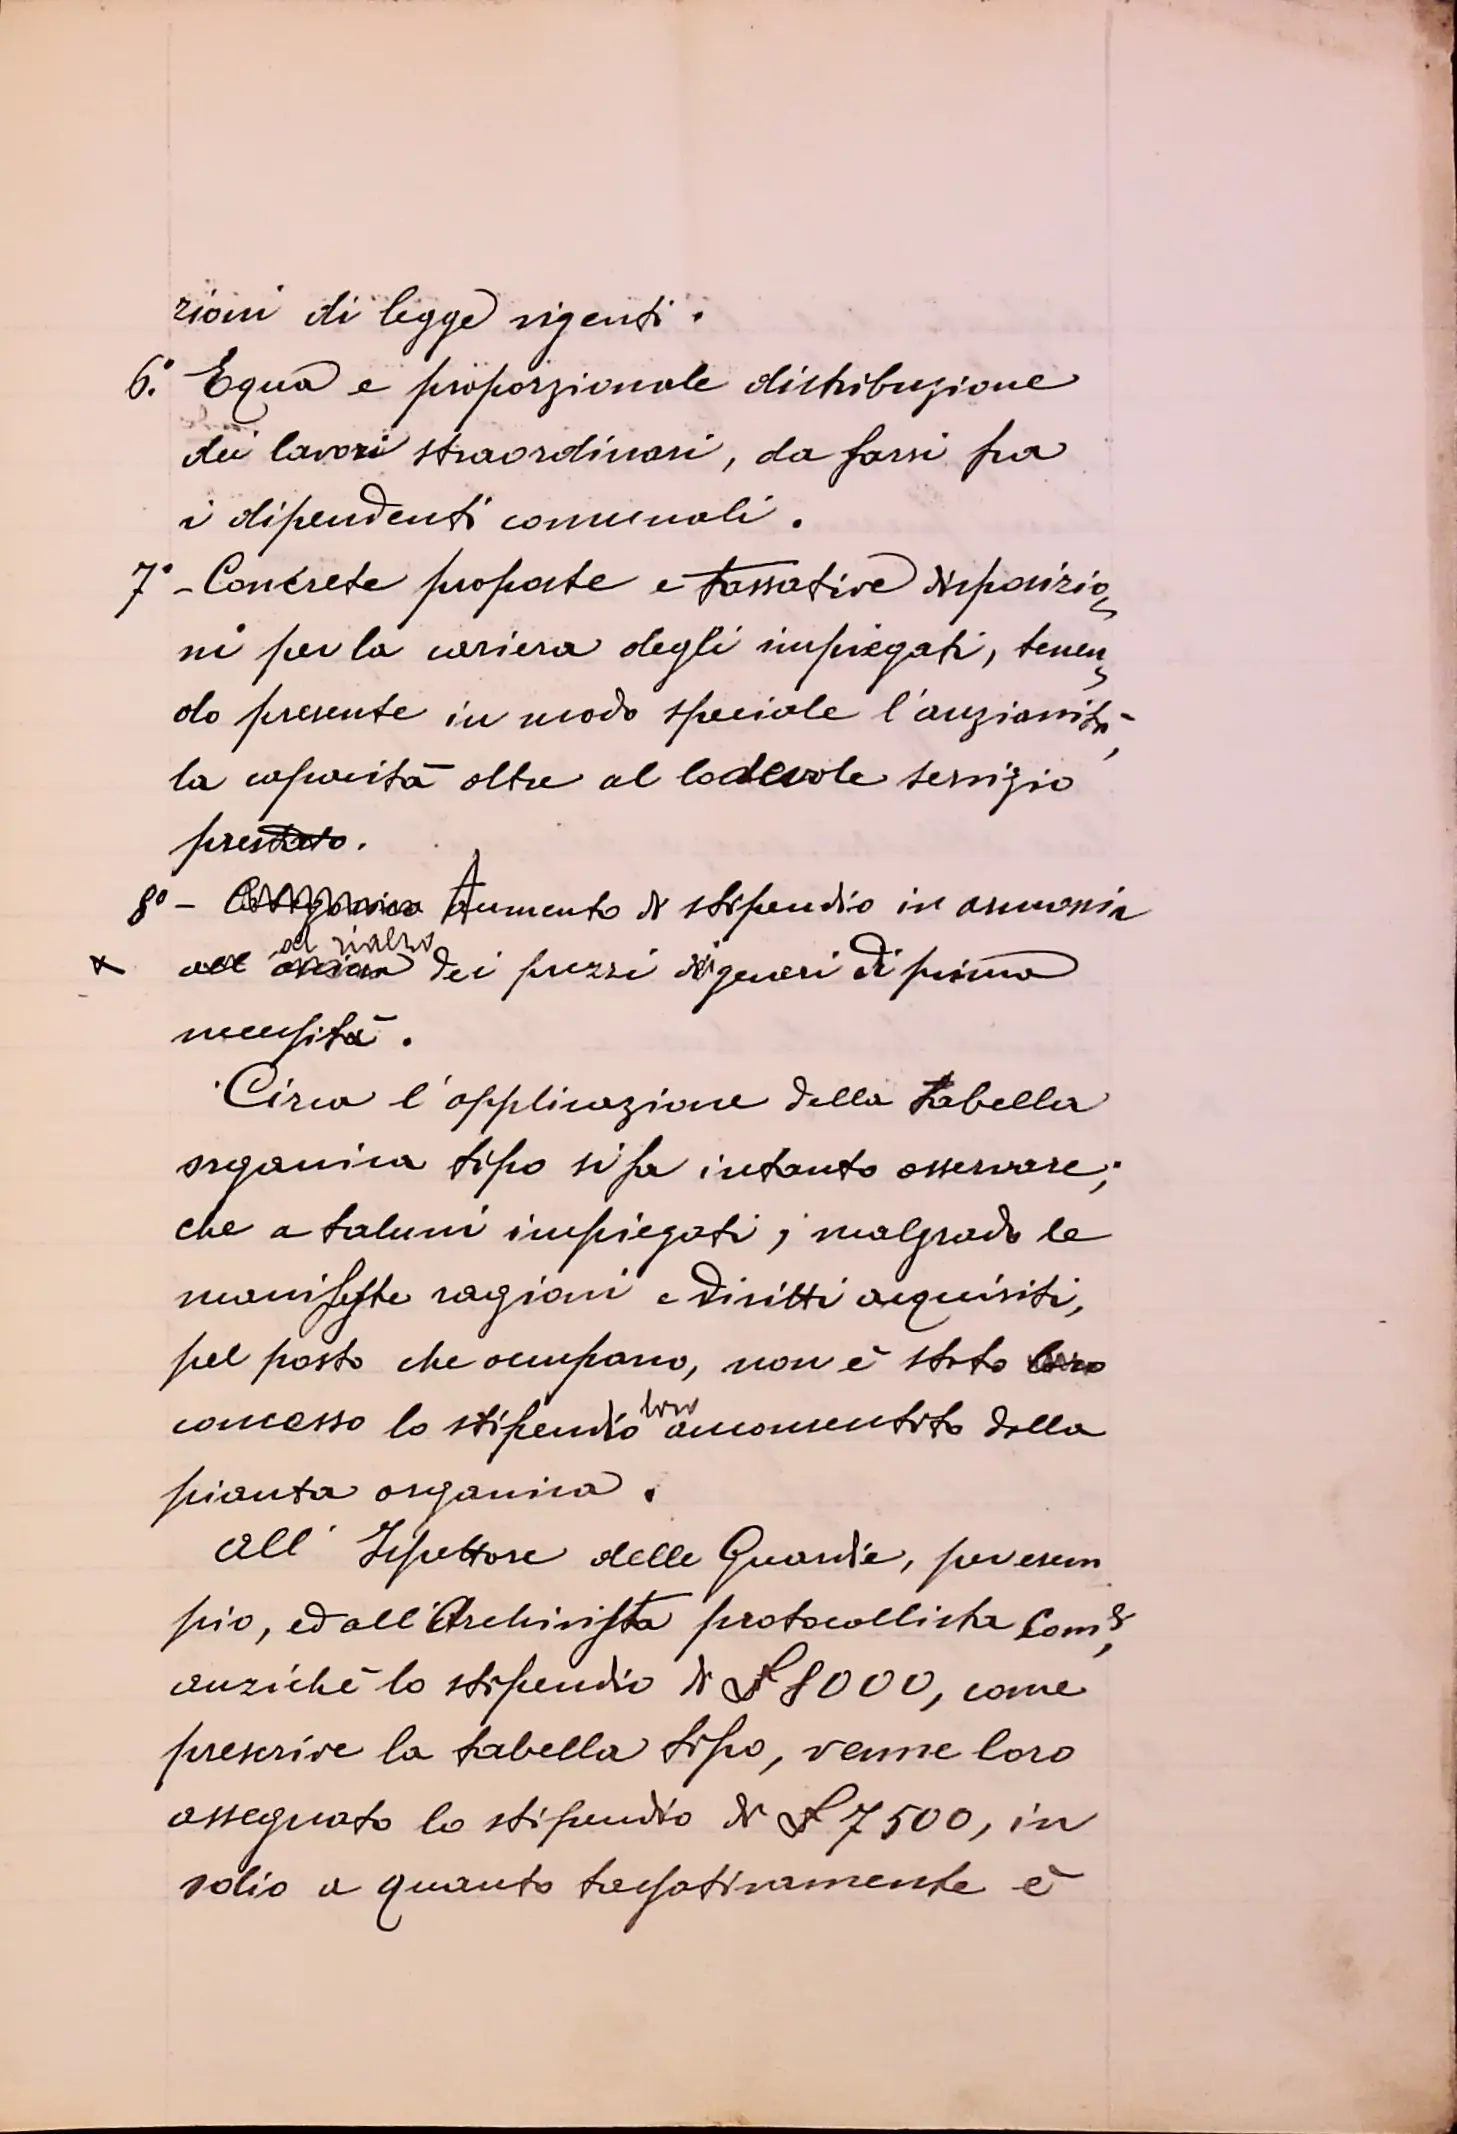 zioni di legge vigenti.
6.° Equa e proporzionale distribuzione
dei lavori straordinari, da farsi fra
i dipendenti comunali.
7° - Concrete proposte e tassative disposizio=
ni per la cariera degli impiegati, tenen=
do presente in modo speciale l'anzianità,
la capacità oltre al lodevole servizio
prestato.
8° - Aumento di stipendio in armonia
al rialzo
x all' dei prezzi dei generi di prima
necessità.
Circa l'applicazione della tabella
organica tipo si fa intanto osservare;
che a taluni impiegati, malgrado le
manifeste ragioni e diritti acquisiti,
pel posto che occupano, non è stato loro
loro
concesso lo stipendio acconsentito dalla
pianta organica.
All' Ispettore delle Guardie, per esem
pio, ed all'Archivista protocollista Com.le,
anzichè lo stipendio di £ 8000, come
prescrive la tabella tipo, venne loro
assegnato lo stipendio di £ 7500, in
odio a quanto tassativamente è